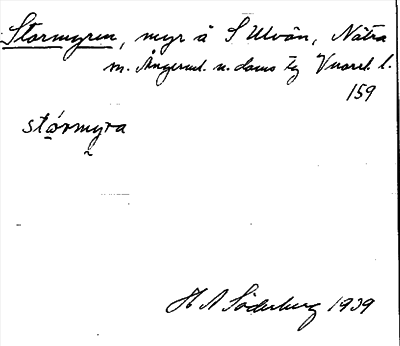 Stormyren, myr å S Ulvön, Nätra
m. Ångerml. n. doms tg Vuorel. l.
159
stórmyra
H A Söderberg 1939